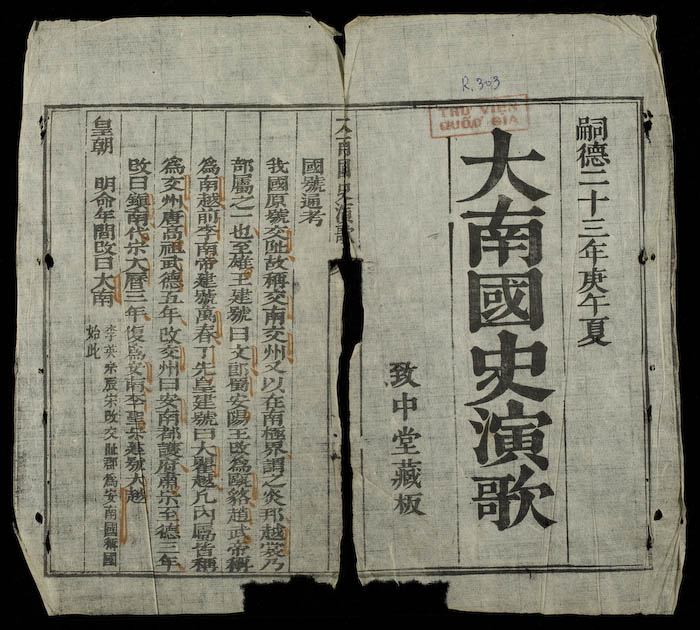 R.303
THƯ VIỆN
QUỐC GIA
嗣德二十三年庚午夏
大南國史演歌
致中堂藏板
大南國史演歌
國號通考
我國原號交趾故稱交南交州又以在南極界謂之炎邦越裳乃
部屬之一也至雄王建號曰文郎蜀安陽王改為甌貉趙武帝稱
為南越前李南帝建號萬春丁先皇建號曰大瞿越凡內屬皆稱
為交州唐高祖武德五年改交州曰安南都護府肅宗至德三年
改曰鎮南代宗大曆三年復為安南李聖宗建號大越
皇朝 明命年間改曰大南
李英宗辰宋改交趾郡為安南國稱國
始此